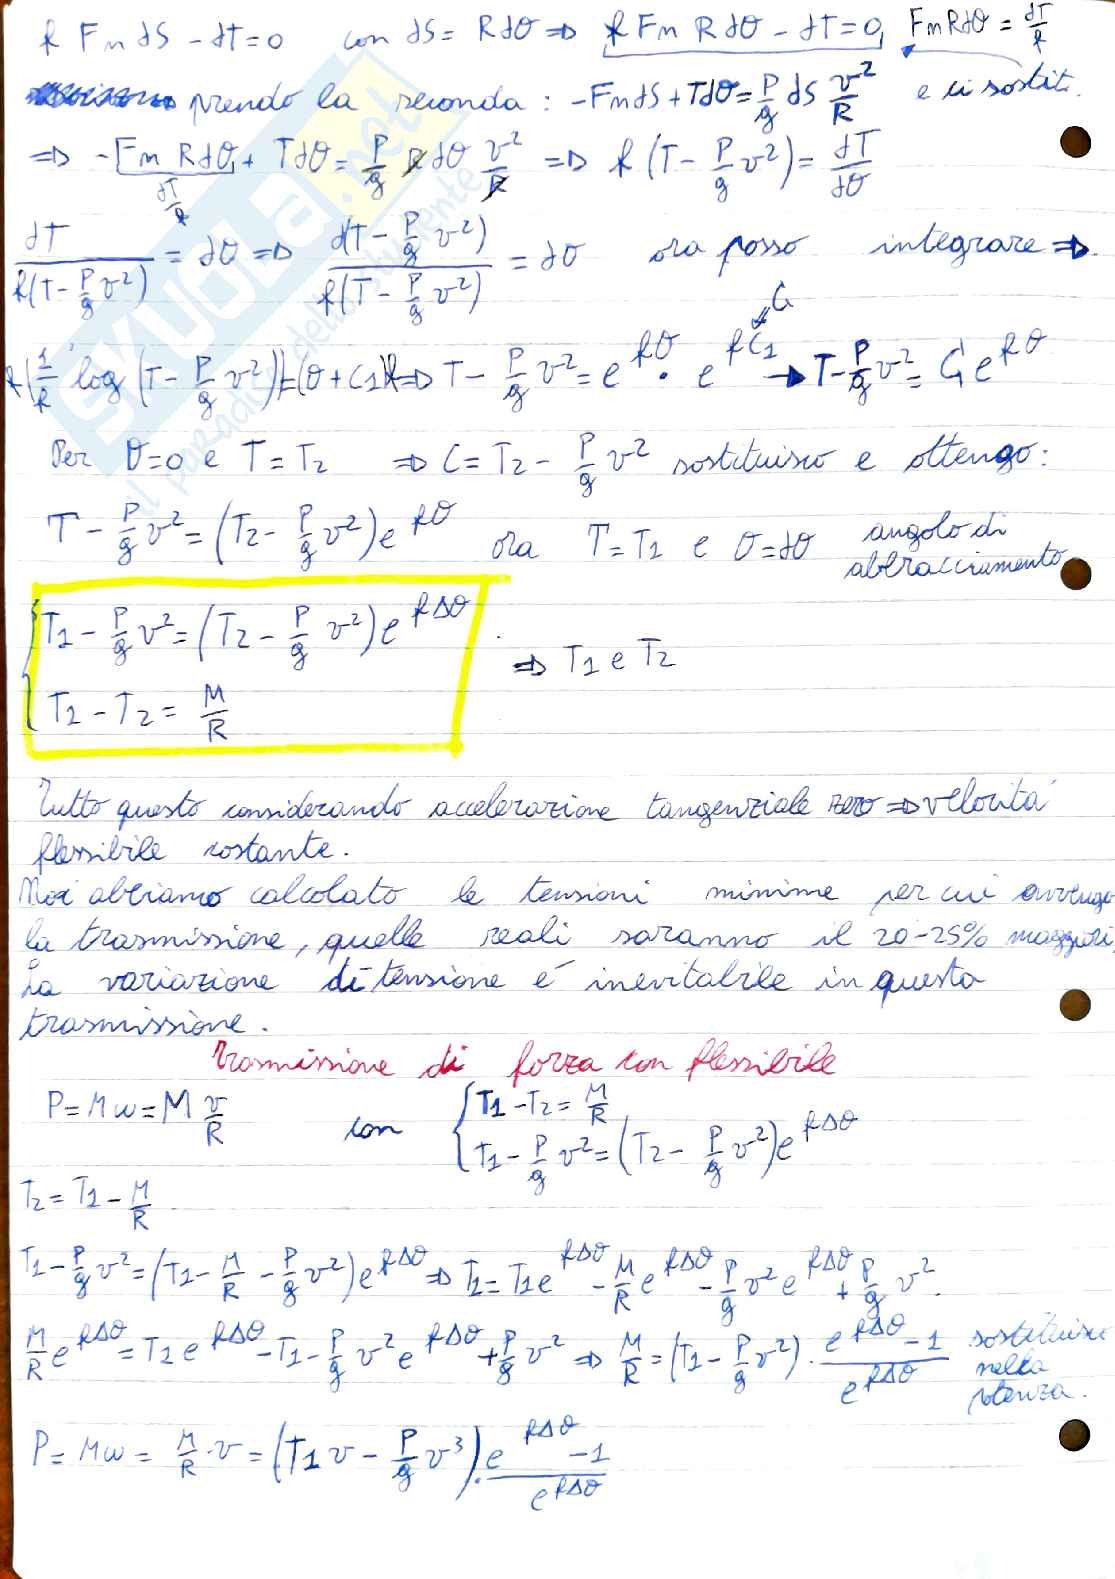 f Fn dS - dT = 0 con dS = R dθ ⇒ f Fn R dθ - dT = 0, Fn R dθ = dT/f
prendo la seconda: -Fn dS + T dθ = P/g dS v²/R e ci sostit.
⇒ -Fn R dθ + T dθ = P/g R dθ v²/R ⇒ f (T - P/g v²) = dT/dθ
dT/f
dT/f(T - P/g v²) = dθ ⇒ d(T - P/g v²)/f(T - P/g v²) = dθ ora posso integrare ⇒
f(1/f log (T - P/g v²)) = (θ + C1)f ⇒ T - P/g v² = e^fθ · e^fC1 → T - P/g v² = C e^fθ
Per θ=0 e T=T2 ⇒ C = T2 - P/g v² sostituisco e ottengo:
T - P/g v² = (T2 - P/g v²) e^fθ ora T=T1 e θ=dθ angolo di
abbracciamento
T1 - P/g v² = (T2 - P/g v²) e^fΔθ
⇒ T1 e T2
T2 - T2 = M/R
Tutto questo considerando accelerazione tangenziale zero ⇒ velocità
flessibile costante.
Noi abbiamo calcolato le tensioni minime per cui avvenga
la trasmissione, quelle reali saranno il 20-25% maggiori,
La variazione di tensione é inevitabile in questa
trasmissione.
Trasmissione di forza con flessibile
P = Mw = M v/R con { T1 - T2 = M/R
T1 - P/g v² = (T2 - P/g v²) e^fΔθ
T2 = T1 - M/R
T1 - P/g v² = (T1 - M/R - P/g v²) e^fΔθ ⇒ T1 = T1 e^fΔθ - M/R e^fΔθ - P/g v² e^fΔθ + P/g v².
M/R e^fΔθ = T1 e^fΔθ - T1 - P/g v² e^fΔθ + P/g v² ⇒ M/R = (T1 - P/g v²) · e^fΔθ - 1/e^fΔθ sostituisco
nella
potenza.
P = Mw = M/R · v = (T1 v - P/g v³) · e^fΔθ - 1/e^fΔθ
SKUOLA.net
il paradiso dello studente